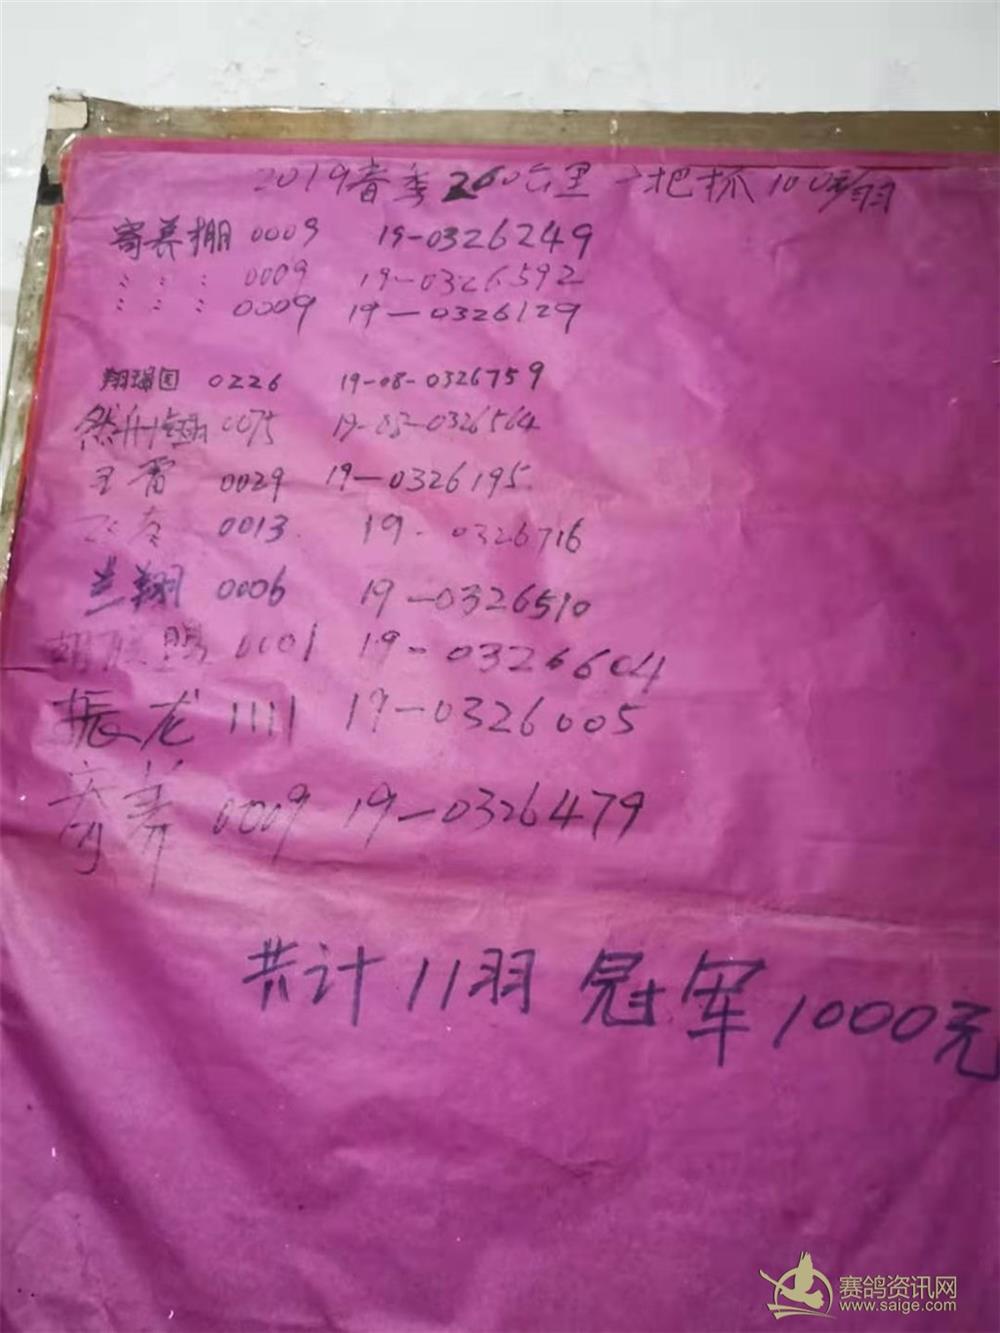 2019春季260公里一把抓100元/羽
寄养棚 0009 19-0326249
〃 〃 〃 0009 19-0326592
〃 〃 〃 0009 19-0326129
翔瑞园 0226 19-08-0326759
0075 19-03-0326564
王雷 0029 19-0326195
0013 19-0326716
兰翔 0006 19-0326510
盟 0001 19-0326604
振龙 1111 19-0326005
寄养 0009 19-0326479
共计11羽 冠军1000元
赛鸽资讯网
www.saige.com